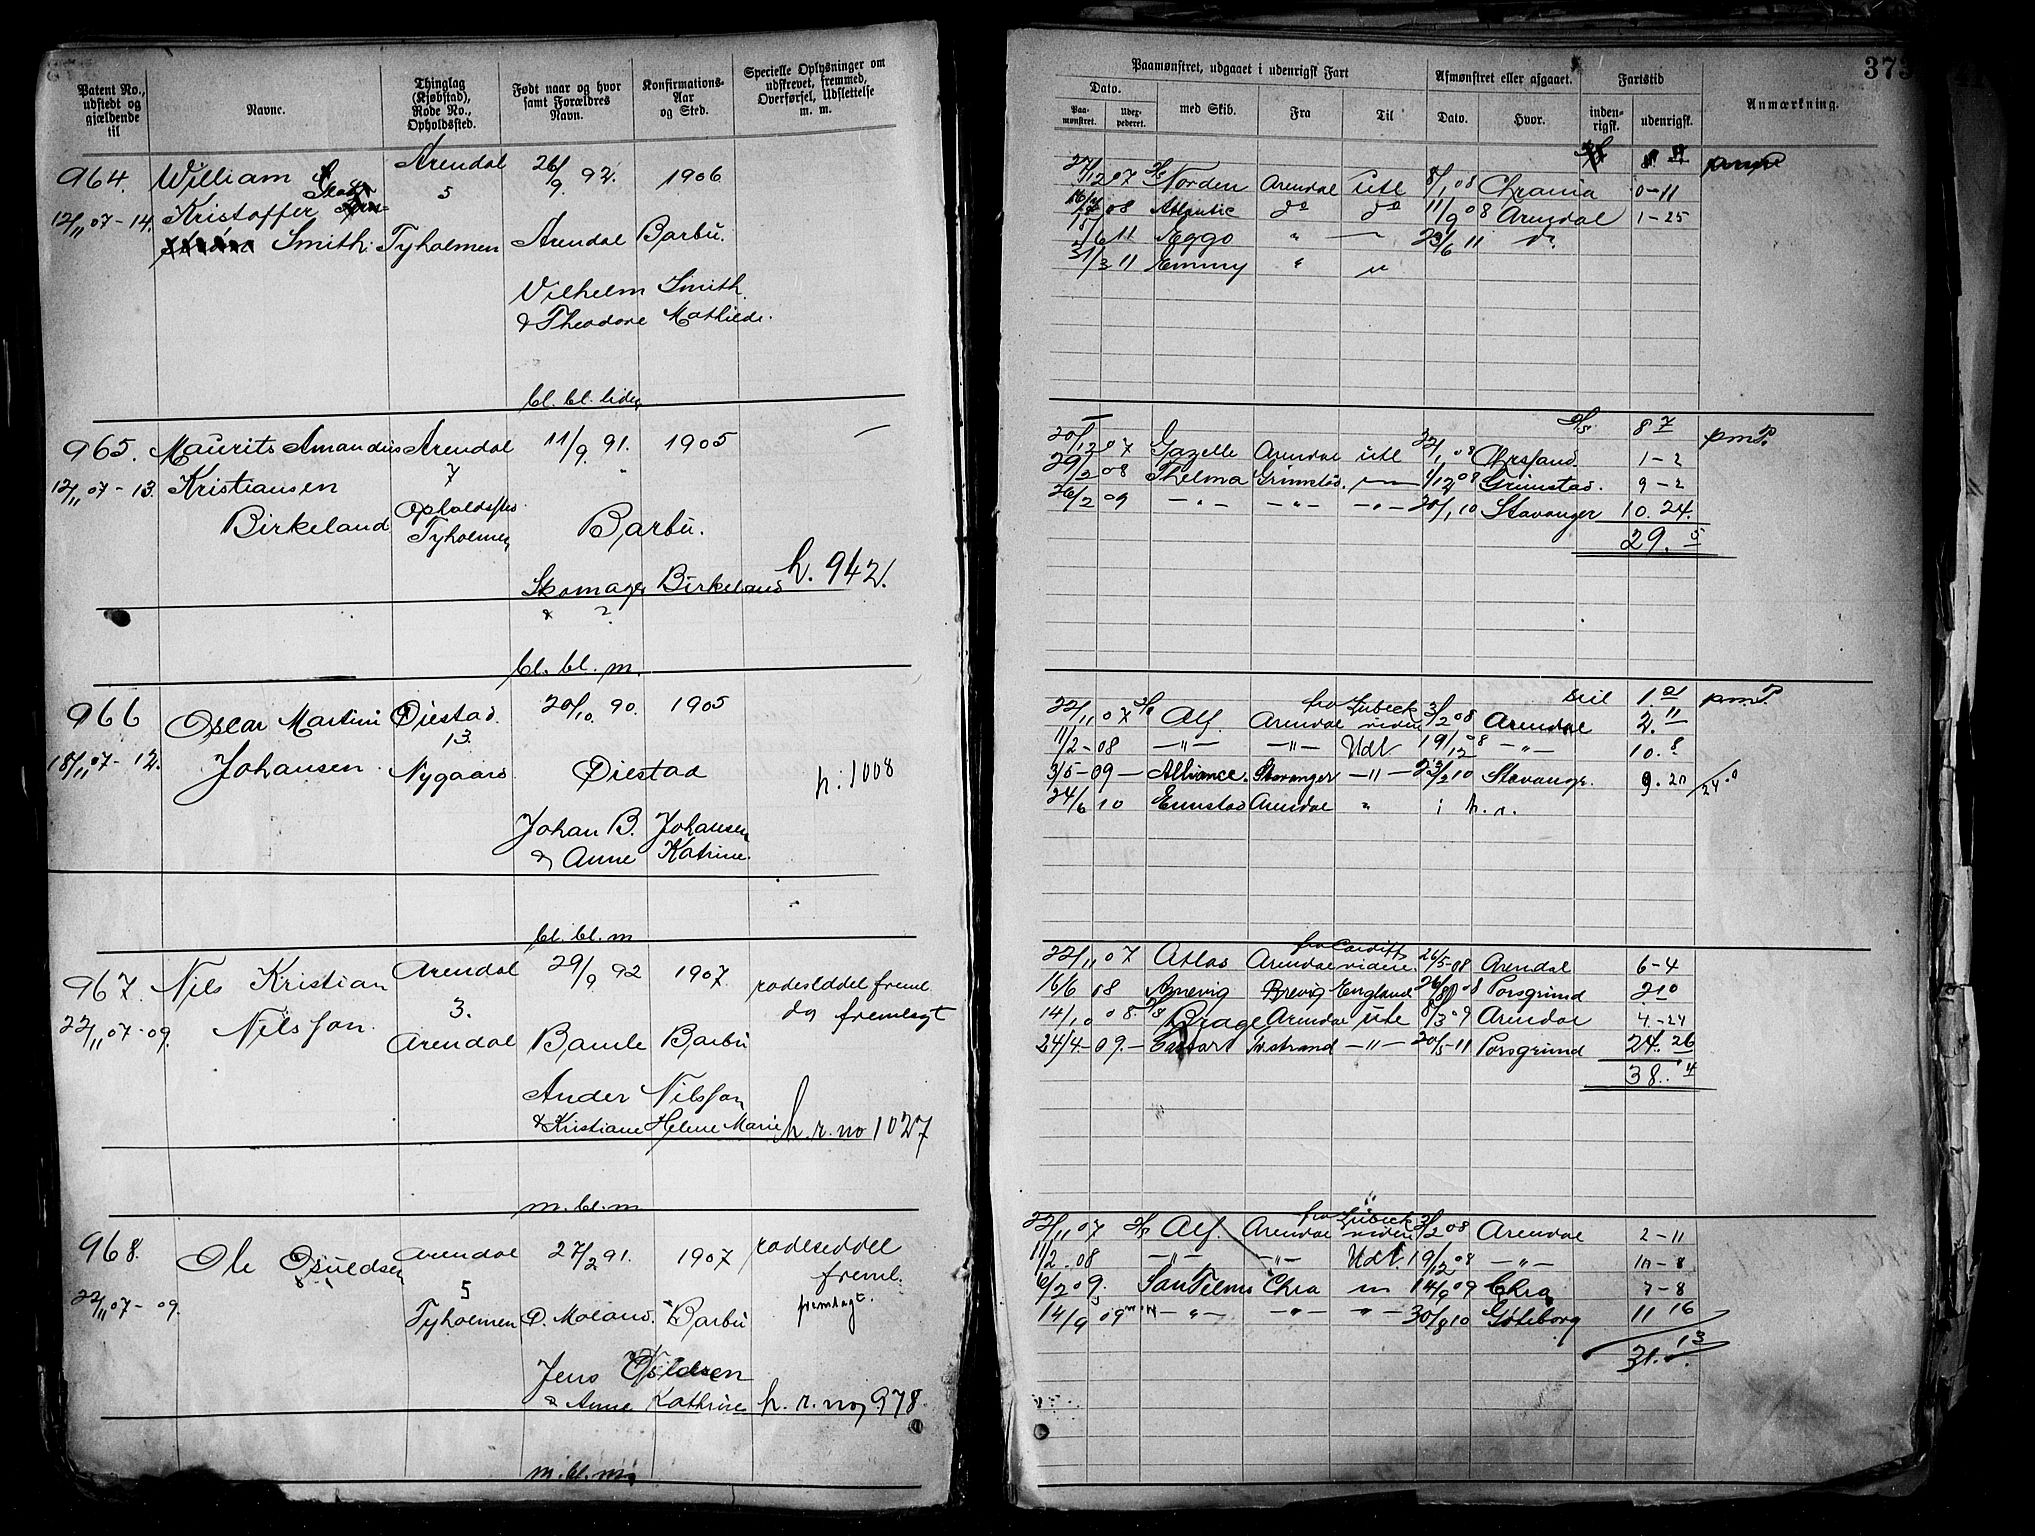 Patent No., udstedt og gjældende til
Navne.
Thinglag (Kjøbstad), Rode No., Opholdssted.
Født naar og hvor samt Forældres Navn.
Konfirmations-Aar og Sted.
Specielle Oplysninger om udskrevet, fremmed, Overførsel, Udslettelse m. m.
964. William Kristoffer Smith. Arendal 26/9 92. 1906
5
12/11 07-14. Tyholmen Arendal Barbu.
Vilhelm Smith
& Theodore Mathilde.
bl. bl. liden
965. Maurits Amandus Arendal 11/9 91. 1905 —
7
12/11 07-13. Kristiansen
Birkeland Opholdssted Tyholmen Barbu.
h. 942.
Skomager Birkeland
& ?
bl. bl. m.
966 Oscar Martin Øiestad. 20/10 90. 1905
13.
18/11 07-12. Johansen Nygaard Øiestad h. 1008
Johan B. Johansen
& Anne Katrine.
bl. bl. m
967. Nils Kristian Arendal 29/9 92 1907. rodeseddel freml.
3. fremlagt
22/11 07-09. Nilsson. Arendal Bamle Barbu
Ander Nilsson
& Kristiane Helene Marie h. r. no 1027
m. bl. m
968. Ole Osuldsen Arendal 27/2 91. 1907 rodeseddel freml.
5 fremlagt.
22/11 07-09. Tyholmen Ø. Moland. Barbu
Jens
& Anne Kathrine h. r. no, 978.
m. bl. m.
373
Paamønstret, udgaaet i udenrigsk Fart
Afmønstret eller afgaaet.
Fartstid
Anmærkning.
Dato.
Paa-mønstret.
Udex-pederet.
med Skib.
Fra
Til
Dato.
Hvor.
inden-rigsk.
udenrigsk.
27/12 07 Norden Arendal utl 8/1 08 Chrania 0-11
08 Atlantic do do 11/9 08 Arendal 1-25
15/6 11 Eggo " — 23/6 11 do
31/3 11 Emmy " "
8 7 pmP.
20/12 07 Gazelle Arendal utl 22/1 08 Chrsand. 1-2
29/2 08 Thelma Grimstad. — 1/12 08 Grimstad. 9-2
26/2 09 —"— —"— —"— 20/1 10 Stavanger 10. 24.
29. 5
seil 1. 21 pmP.
22/11 07 Alf Arendal fra Lübeck videre 3/2 08 Arendal 2. 11
11/2-08 —"— —"— Udl 19/12 08 —"— 10. 8
3/5-09 — Alliance. Stavanger —"— 23/2 10 Stavange. 9. 20
24/6 10 Arendal " i h. r.
22/11 07 Atlas Arendal fra Cardiff videre 26/5-08 Arendal 6-4
16/6 08 Agnevig Brevig England 26/8 08 Porsgrund 2 10
14/10 08 Brage Arendal ute 8/3 09 Arendal 4-24
24/4-09.- —"— 20/5-11 Porsgrund 24. 26
38. 4
22/11 07 Alf. Arendal fra Lübeck videre 3/2 08 Arendal 2-11
11/2. 08 —"— —"— Udl 19/12 08 —"— 10-8
6/2 09. Chra — 14/9 09 Chra 7-8
14/9 09 —"— —"— —"— 30/8 10 Göteborg 11 16
31. 13